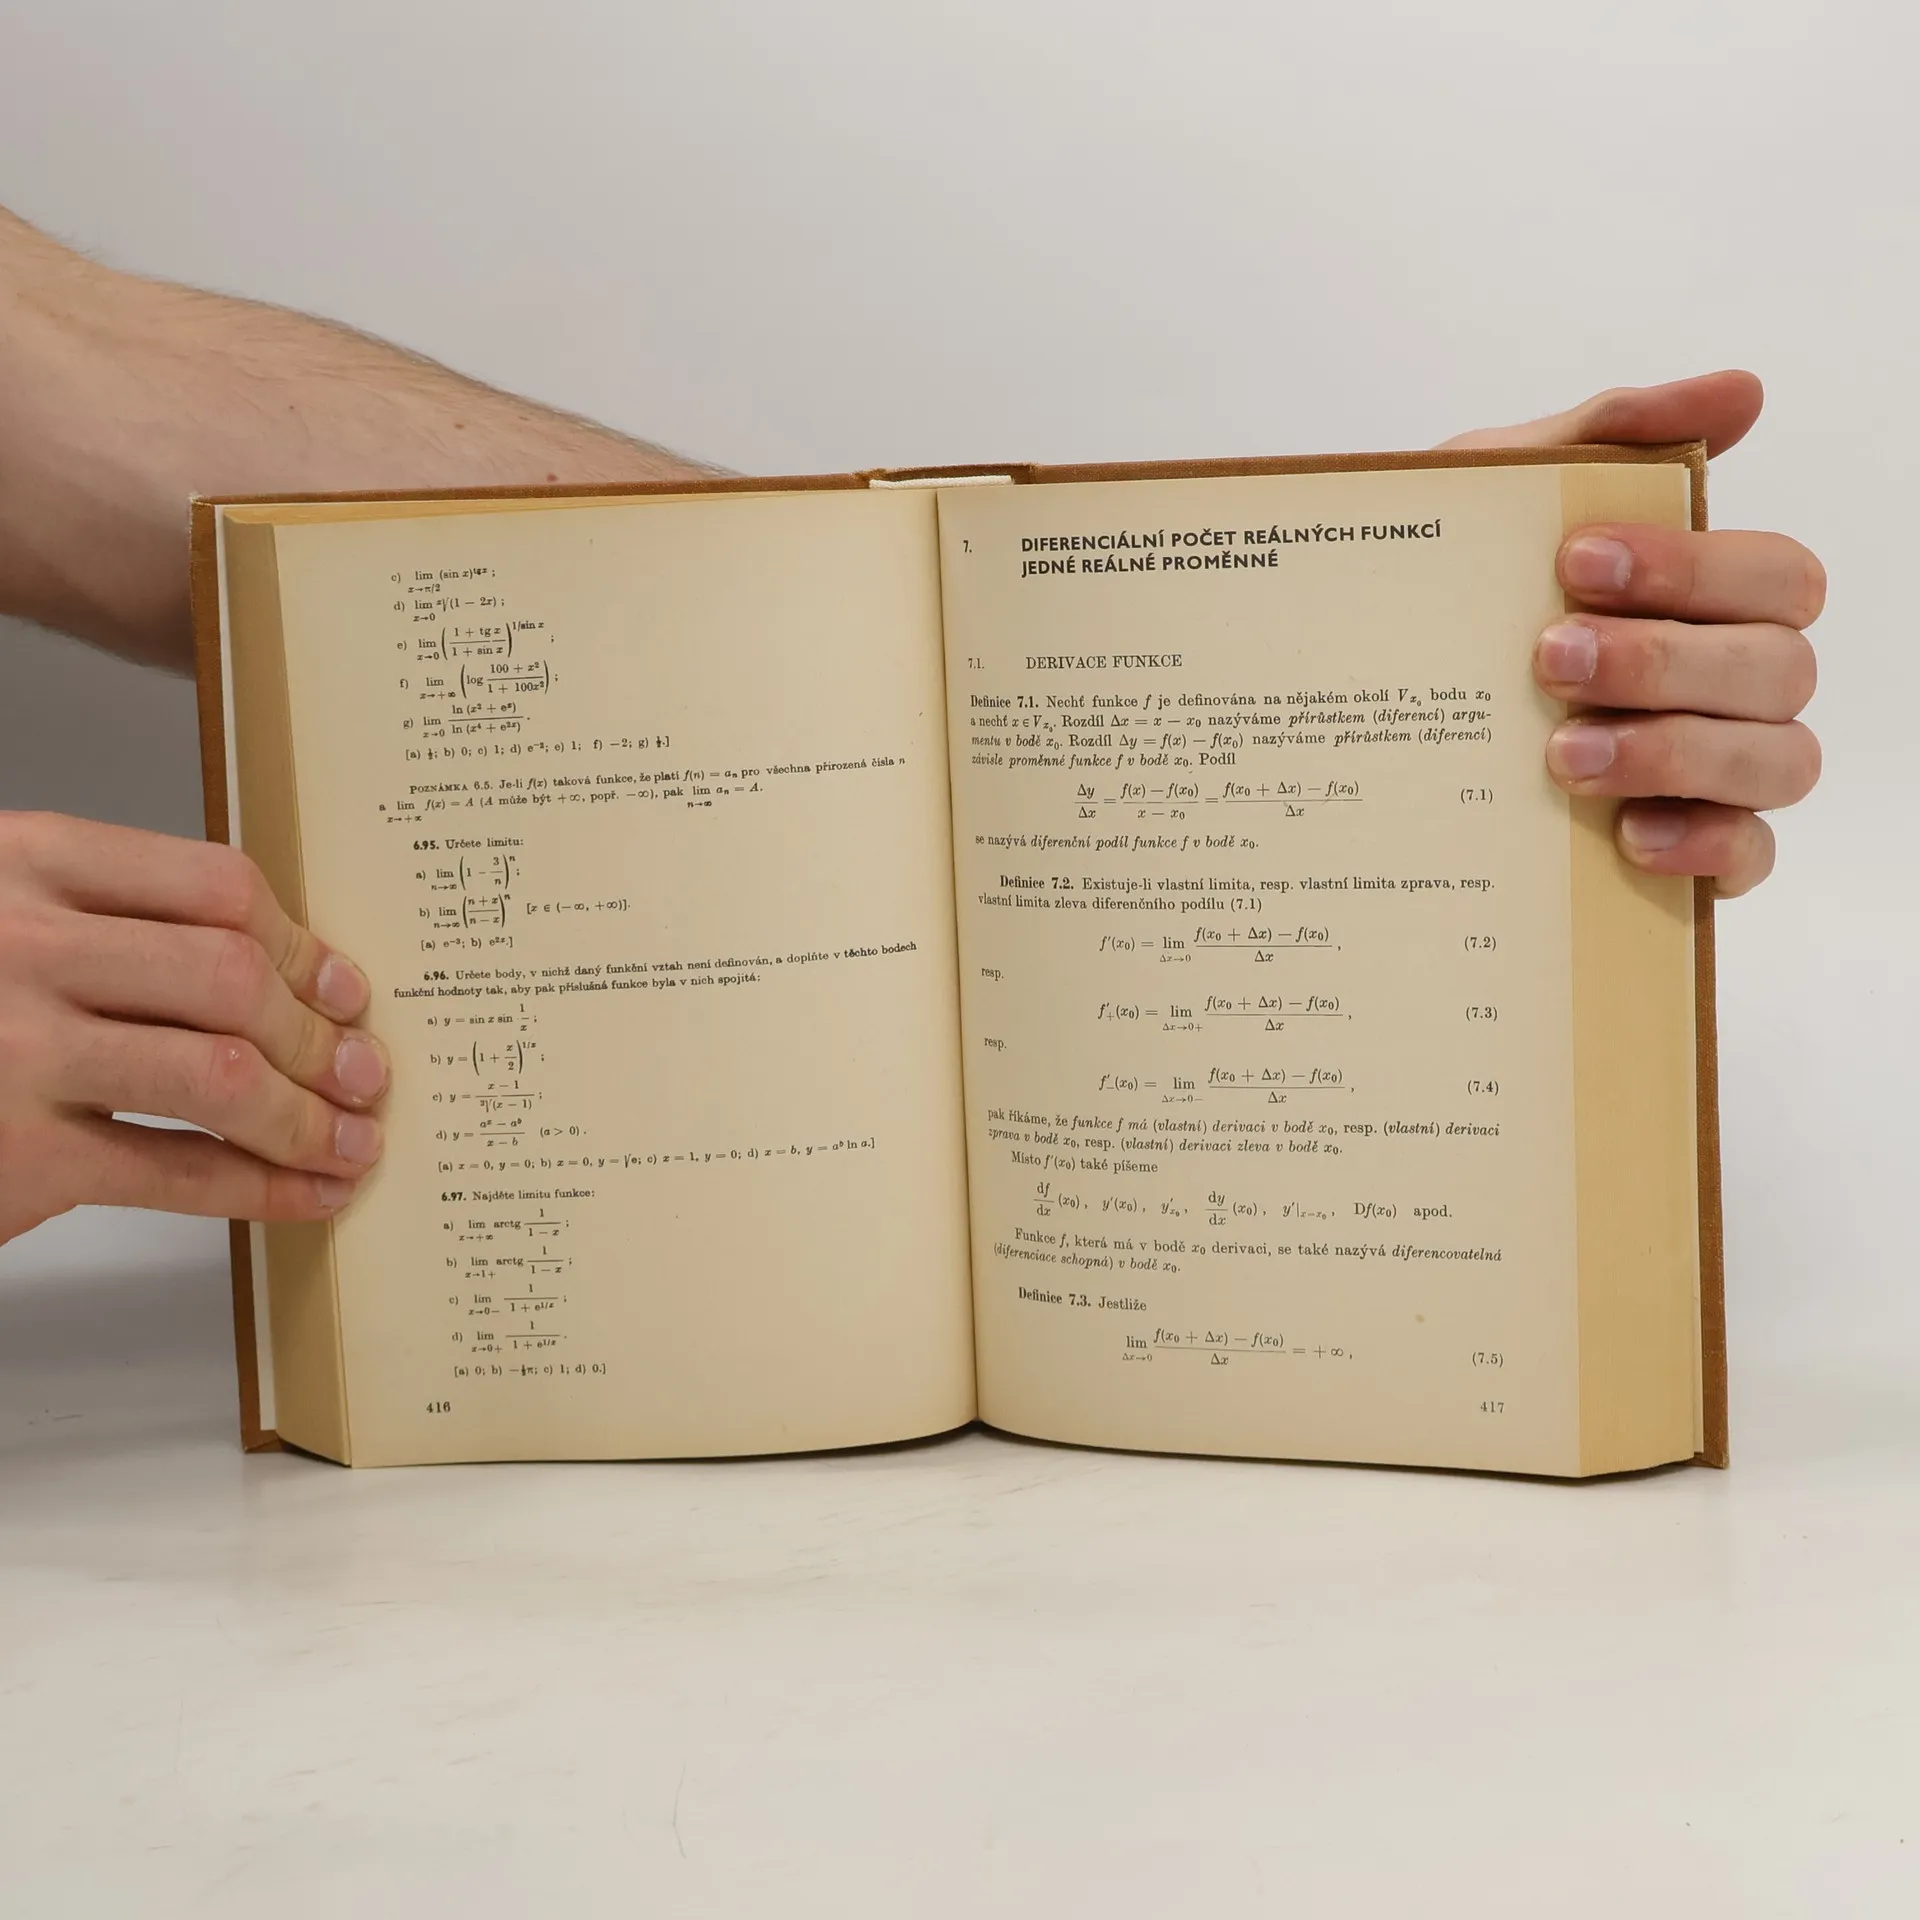 c) lim (sin x)^{tg x} ;
x→π/2
d) lim ^x√(1 − 2x) ;
x→0
e) lim ((1 + tg x)/(1 + sin x))^{1/sin x} ;
x→0
f) lim (log (100 + x²)/(1 + 100x²)) ;
x→+∞
g) lim ln (x² + eˣ)/ln (x⁴ + e²ˣ) .
x→0
b) 0; c) 1; d) e⁻²; e) 1; f) −2; g)
POZNÁMKA 6.5. Je-li f(x) taková funkce, že platí f(n) = aₙ pro všechna přirozená čísla n
a lim f(x) = A (A může být +∞, popř. −∞), pak lim aₙ = A.
x→+∞ n→∞
6.95. Určete limitu:
a) lim (1 − 3/n)ⁿ ;
n→∞
b) lim ((n + x)/(n − x))ⁿ [x ∈ (−∞, +∞)].
n→∞
[a) e⁻³; b) e²ˣ.]
6.96. Určete body, v nichž daný funkční vztah není definován, a doplňte v těchto bodech
funkční hodnoty tak, aby pak příslušná funkce byla v nich spojitá:
a) y = sin x sin 1/x ;
b) y = (1 + x/2)^{1/x} ;
c) y = (x − 1)/³√(x − 1) ;
d) y = (aˣ − aᵇ)/(x − b) (a > 0) .
[a) x = 0, y = 0; b) x = 0, y = √e; c) x = 1, y = 0; d) x = b, y = aᵇ ln a.]
6.97. Najděte limitu funkce:
a) lim arctg 1/(1 − x) ;
x→+∞
b) lim arctg 1/(1 − x) ;
x→1+
c) lim 1/(1 + e^{1/x}) ;
x→0−
d) lim 1/(1 + e^{1/x}) .
x→0+
[a) 0; b) −½π; c) 1; d) 0.]
416
7. DIFERENCIÁLNÍ POČET REÁLNÝCH FUNKCÍ
JEDNÉ REÁLNÉ PROMĚNNÉ
7.1. DERIVACE FUNKCE
Definice 7.1. Nechť funkce f je definována na nějakém okolí V_{x₀} bodu x₀
a nechť x ∈ V_{x₀}. Rozdíl Δx = x − x₀ nazýváme přírůstkem (diferencí) argu-
mentu v bodě x₀. Rozdíl Δy = f(x) − f(x₀) nazýváme přírůstkem (diferencí)
závisle proměnné funkce f v bodě x₀. Podíl
Δy/Δx = (f(x) − f(x₀))/(x − x₀) = (f(x₀ + Δx) − f(x₀))/Δx (7.1)
se nazývá diferenční podíl funkce f v bodě x₀.
Definice 7.2. Existuje-li vlastní limita, resp. vlastní limita zprava, resp.
vlastní limita zleva diferenčního podílu (7.1)
f′(x₀) = lim (f(x₀ + Δx) − f(x₀))/Δx , (7.2)
Δx→0
resp.
f′₊(x₀) = lim (f(x₀ + Δx) − f(x₀))/Δx , (7.3)
Δx→0+
resp.
f′₋(x₀) = lim (f(x₀ + Δx) − f(x₀))/Δx , (7.4)
Δx→0−
pak říkáme, že funkce f má (vlastní) derivaci v bodě x₀, resp. (vlastní) derivaci
zprava v bodě x₀, resp. (vlastní) derivaci zleva v bodě x₀.
Místo f′(x₀) také píšeme
df/dx (x₀) , y′(x₀) , y′_{x₀} , dy/dx (x₀) , y′|_{x=x₀} , Df(x₀) apod.
Funkce f, která má v bodě x₀ derivaci, se také nazývá diferencovatelná
(diferenciace schopná) v bodě x₀.
Definice 7.3. Jestliže
lim (f(x₀ + Δx) − f(x₀))/Δx = +∞ , (7.5)
Δx→0
417